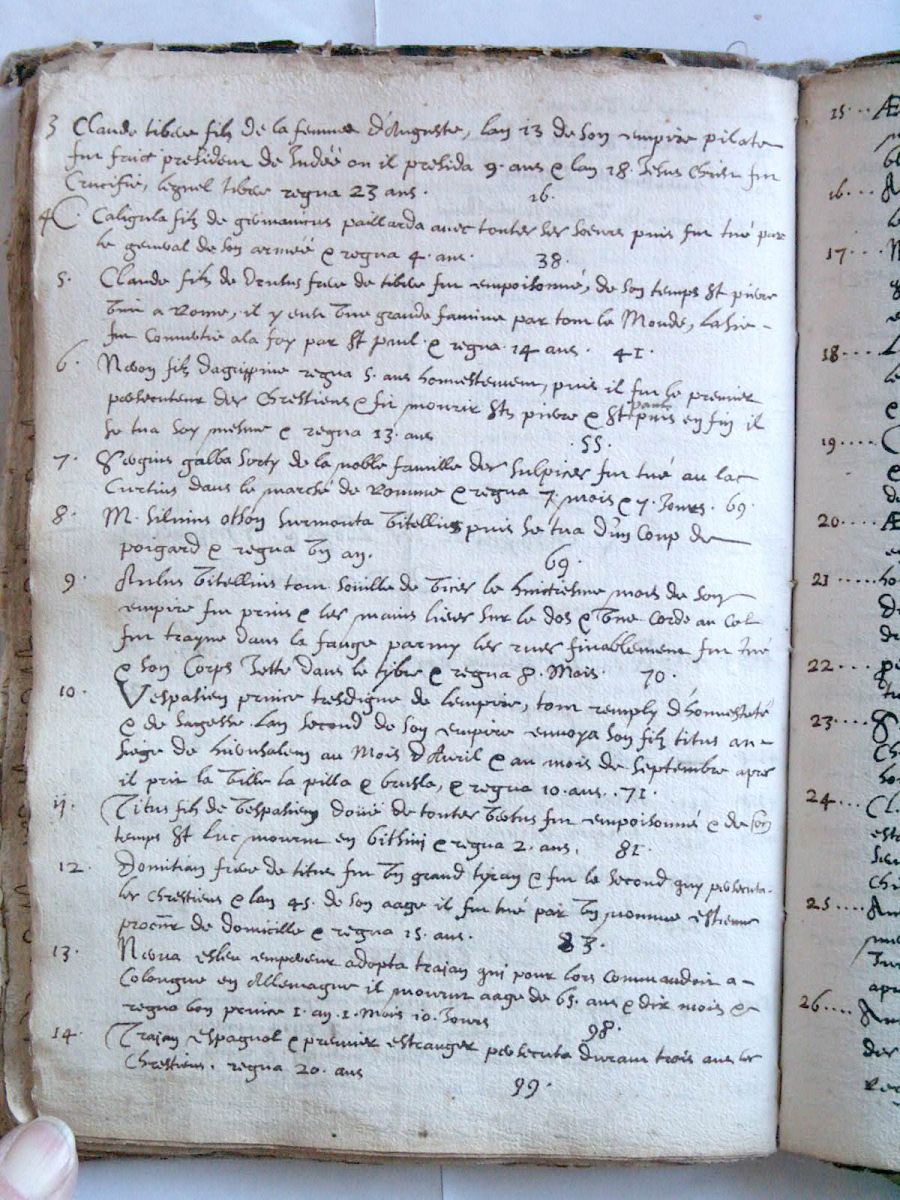 3 Claude tibere filz de la femme d'Auguste, lan 13 de son empire pilate
fut faict president de Judée ou il presida 9. ans & lan 18. Jesus Christ fut
Crucifié, lequel tibere regna 23 ans. 16.
4 C. Caligula filz de germanicus paillarda avec toutes ses soeurs puis fut tué par
le general de son armeé & regna 4. ans. 38.
5. Claude filz de Drusus frere de tibere fut empoisonné, de son temps St pierre
vint a Rome, il y eut une grande famine par tout le Monde,
fut convertie a la foy par St paul. & regna. 14 ans. 41.
6. Neron filz dagrippine regna 5. ans honnestement, puis il fut le premier
persecuteur des Chrestiens & fit mourir Sts pierre & St paul puis en fin il
se tua soy mesme & regna 13. ans 55.
7. Sergius galba sorty de la noble famille des sulpices fut tué au lac
Curtius dans le marché de Romme & regna 7. mois & 7. Jours. 69.
8. M. silvius othon surmonta vitellius puis se tua d'un coup de
poigard & regna un an. 69.
9. Aulus vitellius tout soüille de vices le huictiesme mois de son
empire fut prins & les mains liées sur le dos & une corde au col
fut trayne dans la fange parmy les rues finablement fut tué
& son Corps Jetté dans le tybre & regna 8. Mois. 70.
10. Vespasien prince tresdigne de lempire, tout remply d'honnesteté
& de sagesse lan second de son empire envoya son filz titus au
siege de hierusalem au Mois d'Avril & au mois de septembre apres
il prit la ville la pilla & brusla, & regna 10. ans. 71.
11. Titus filz de vespasien doüé de toutes vertus fut empoisonné & de son
temps St Luc mourut en bithini & regna 2. ans. 81.
12. Domitian frere de titus fut un grand tyran & fut le second quy persecuta
les Chrestiens & lan 45. de son aage il fut tué par un nommé estienne
de domicille & regna 15. ans. 83.
13. Nerva esleu empereur adopta trajan qui pour lors commandoit a
Colongne en Allemagne il mourut aagé de 65. ans & dix mois &
regna bon prince 1. an. 1. Mois 10. Jours 98.
14. Trajan espagnol & premier estranger persecuta durant trois ans les
Chrestiens. regna 20. ans 99.
15...
16...
17...
18....
19....
20....
21.....
22....
23....
24...
25....
26....